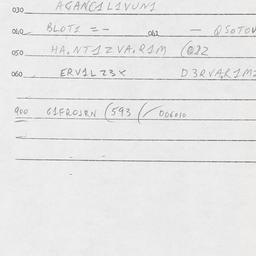 030 AGANC1L1VUN1
040 BLOT1 = - 042 - QSOTOV
050 HA,NT1ZVA,R1M (082
060 ERV1LZ3X D3RVAR1M2
900 G1FROJRN (593 (/ 006010